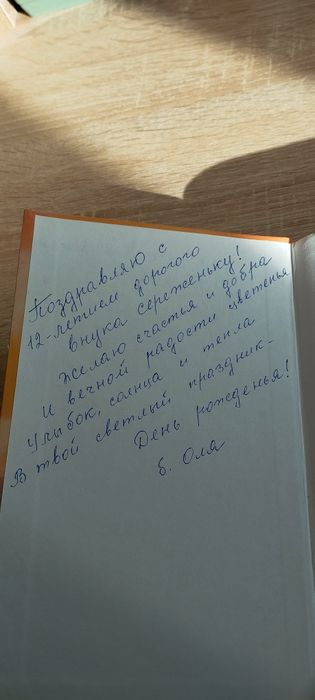 Поздравляю с
12-летием дорогого
внука сереженьку!
Желаю счастья и добра
И вечной радости цветенья
Улыбок, солнца и тепла
В твой светлый праздник -
День рожденья!
б. Оля